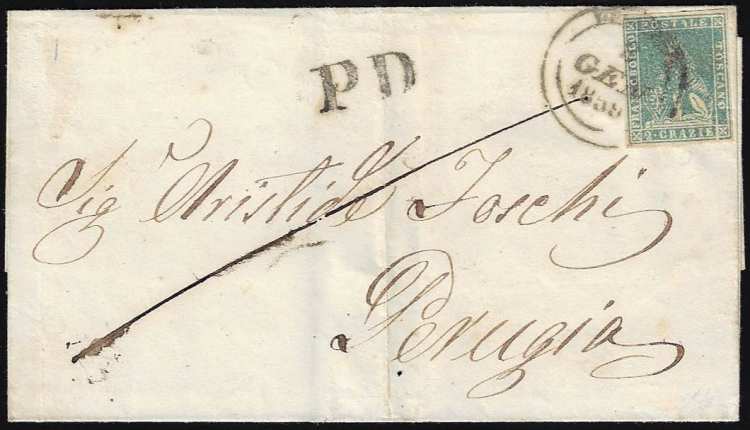 PD
GEN
1859
FRANCOBOLLO
POSTALE
TOSCANO
2 CRAZIE
Sig.r Aristide Toschi
Perugia